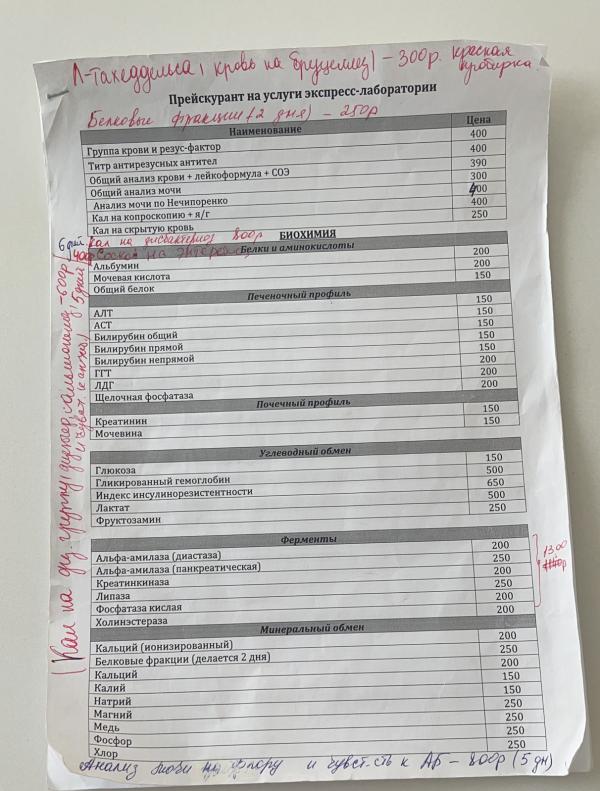 кровь на бруцеллез) - 300р. красная пробирка
Прейскурант на услуги экспресс-лаборатории
Белковые фракции (2 дня) - 250р
Наименование Цена
Группа крови и резус-фактор 400
Титр антирезусных антител 400
Общий анализ крови + лейкоформула + СОЭ 390
Общий анализ мочи 300
Анализ мочи по Нечипоренко 400
Кал на копроскопию + я/г 400
Кал на скрытую кровь 250
6 дней Кал на дисбактериоз 800р
БИОХИМИЯ
Соскоб на энтеробиоз
Белки и аминокислоты
Альбумин 200
Мочевая кислота 200
Общий белок 150
Печеночный профиль
АЛТ 150
АСТ 150
Билирубин общий 150
Билирубин прямой 150
Билирубин непрямой 150
ГГТ 200
ЛДГ 200
Щелочная фосфатаза 200
Почечный профиль
Креатинин 150
Мочевина 150
Углеводный обмен
Глюкоза 150
Гликированный гемоглобин 500
Индекс инсулинорезистентности 650
Лактат 500
Фруктозамин 250
Ферменты
Альфа-амилаза (диастаза) 200
Альфа-амилаза (панкреатическая) 250
Креатинкиназа 200
Липаза 250
Фосфатаза кислая 200
Холинэстераза 200
1300
Минеральный обмен
Кальций (ионизированный) 200
Белковые фракции (делается 2 дня) 250
Кальций 200
Калий 150
Натрий 150
Магний 250
Медь 250
Фосфор 250
Хлор 250
Анализ мочи на флору и чувст-сть к АБ - 800р (5 дн)
Кал на диз. группу - 600р
5 дней